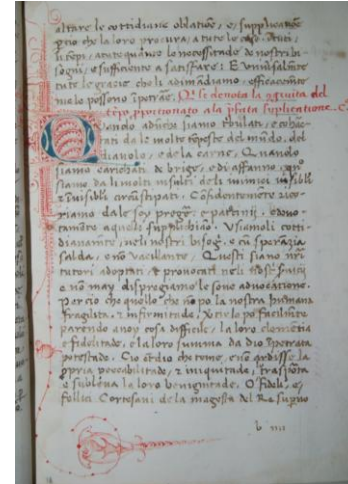 altare le cottidiane oblatiōe, e supplicatiōe
ptio che la loro procura, a tute le cose, etuti
li tēpi, atute quāte le necessitade de nostri bi-
sogni, e sufficiente a satisfare: E vniūsalmēte
tute le gratie che li adimādiamo efficacemēte
ne lo possono īpetrae. Q̄ se denota la
tēpo pportionato a la pfata supplicatione.
Quando adūcha siamo tbulati, e
tati da le molte tēpeste del mūdo, del
diauolo, e de la carne, Quando
siamo carichati de brige, e di affanno, quā
siamo da li molti insulti deli inimici visibili
z inuisibili circūstipati. Cōfidentemēte
riamo dale soy pregē: e patrinij. edeuo-
tamēte aquelli suplichiāo. Vsiamoli cotti-
dianamēte, neli nostri bisog. e cū sperāzia
salda, e nō vacillante. Questi siano nrī
tutori adoptati z prouocati neli
e nō may dispregiamo le soue aduocatione.
Per cio che quello che nō po la nostra humana
fragilita, z infirmitade, xp̄o lo po facilmēte
parendo anoy cosa difficile, la loro clemētia
e fidelitade, e la loro summa da dio īpetrata
potestade. Cio etdio che teme, e nō ardisse la
ppria peccabilitade, z iniquitade, trasporta
e subleua la loro benignitade. O fideli, e
fellici Cortesani de la magesta del Re supno
b iiii